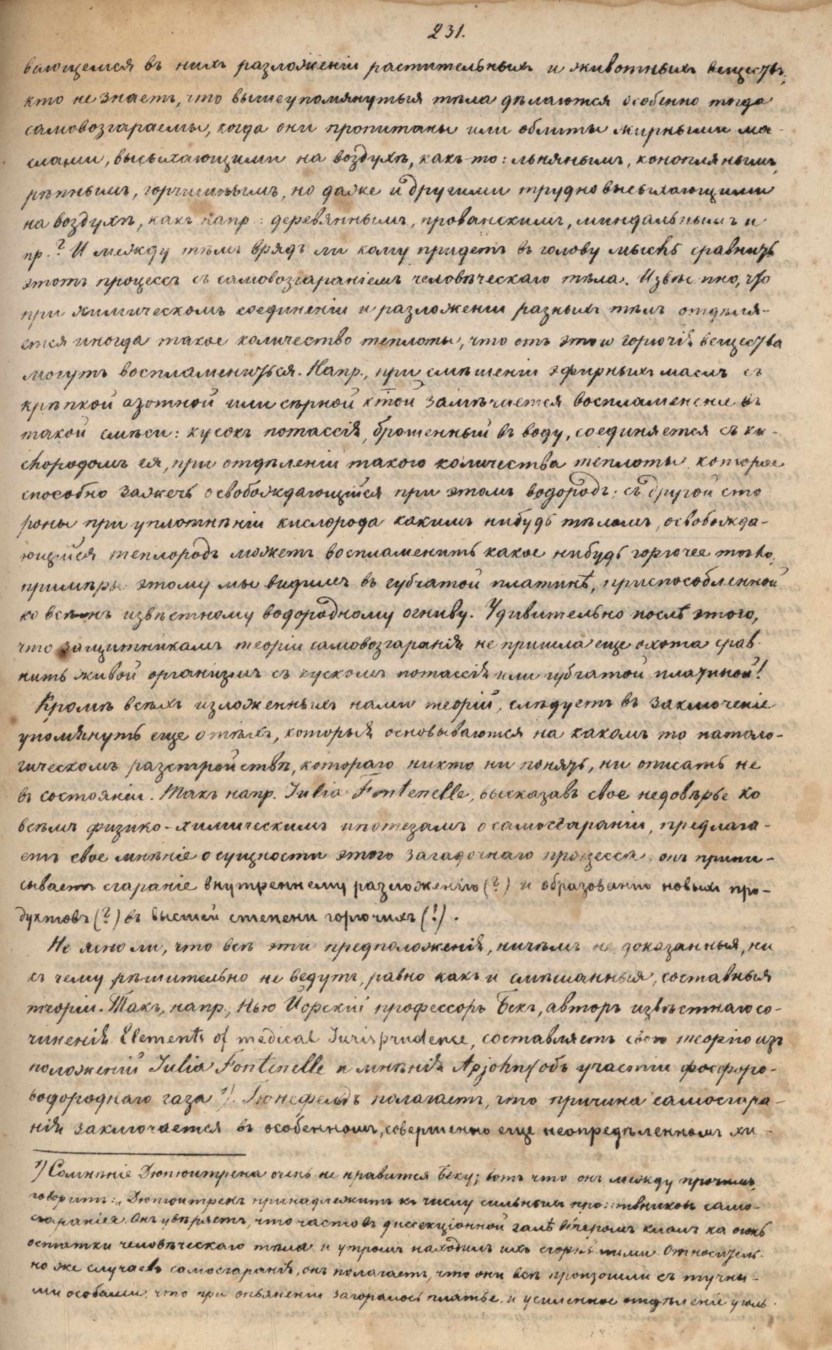 231.
вающемся въ нихъ разложеніи растительныхъ и животныхъ веществъ,
кто не знаетъ, что вышеупомянутыя тѣла дѣлаются особенно тогда
самовозгараемы, когда они пропитаны или облиты жирными ма-
слами, высыхающими на воздухѣ, какъ-то: льнянымъ, коноплянымъ,
рѣпнымъ, горчичнымъ, но даже и другими трудно высыхающими
на воздухѣ, какъ напр: деревяннымъ, прованскимъ, миндальнымъ и
пр.? И между тѣмъ врядъ ли кому придетъ въ голову мысль сравнить
этотъ процессъ съ самовозгараніемъ человѣческаго тѣла. Извѣстно, что
при химическомъ соединеніи и разложеніи разныхъ тѣлъ отдѣля-
ется иногда такое количество теплоты, что отъ этого горючія вещества
могутъ воспламениться. Напр., при смѣшеніи эфирныхъ маслъ съ
крѣпкой азотной или сѣрной к̃той замѣчается воспламененіе въ
такой смѣси: кусокъ потассія, брошенный въ воду, соединяется съ ки-
слородомъ ея, при отдѣленіи такого количества теплоты, которое
способно зажечь освобождающійся при этомъ водородъ; съ другой сто
роны при уплотнѣніи кислорода какимъ нибудь тѣломъ, освобожда-
ющійся теплородъ можетъ воспламенить какое нибудь горючее тѣло,
примѣръ этому мы видимъ въ губчатой платинѣ, приспособленной
ко всѣмъ извѣстному водородному огниву. Удивительно послѣ этого,
что защитникамъ теоріи самовозгаранія не пришла еще охота срав
нить живой организмъ съ кускомъ потассія или губчатой платиной!
Кромѣ всѣхъ изложенныхъ нами теорій, слѣдуетъ въ заключеніе
упомянуть еще о тѣхъ, которыя основываются на какомъ то патоло-
гическомъ разстройствѣ, котораго никто ни понять, ни описать не
въ состояніи. Такъ напр. Julia Fontenelle, высказавъ свое недовѣрье ко
всѣмъ физико-химическимъ ипотезамъ о самосгараніи, предлага-
етъ свое мнѣніе о сущности этого загадочнаго процесса: онъ припи-
сываетъ сгараніе внутреннему разложенію (?) и образованію новыхъ про-
дуктовъ (?) въ высшей степени горючихъ (!).
Не ясно ли, что всѣ эти предположенія, ничѣмъ не доказанныя, ни
къ чему рѣшительно не ведутъ, равно какъ и смѣшанныя, составныя
теоріи. Такъ, напр., Нью Іорскій профессоръ Бекъ, авторъ извѣстнаго со-
чиненія Elements of medical Jurisprudence, составляетъ свою теорію изъ
положеній Julia Fontenelle и мнѣнія Apjohn (объ участіи фосфоро-
водороднаго газа ¹). Гюнефельдъ полагаетъ, что причина самосгора-
нія заключается въ особенномъ, совершенно еще неопредѣленномъ хи-
¹) Сомнѣніе Дюпюитрена очень не нравится Беку; вотъ что онъ между прочимъ
говоритъ: „Дюпюитренъ принадлежитъ къ числу сильныхъ противниковъ само-
сгаранія. Онъ увѣряетъ, что часто въ диссекціонной залѣ вечеромъ клалъ на огонь
остатки человѣческаго тѣла и утромъ находилъ ихъ сгорѣвшими. Относитель
но же случаевъ самосгаранія, онъ полагаетъ, что они всѣ произошли съ тучны-
ми особами, что при опьяненіи загоралось платье, и усиленное отдѣленіе уголь-